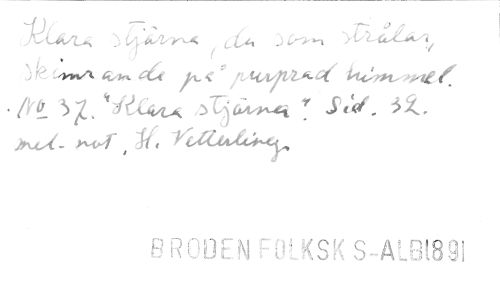 Klara stjärna, du som strålar,
skimrande på purprad himmel.
No 37. "Klara stjärna". Sid. 32.
mel-not, H. Vetterling.
BRODEN FOLKSK S-ALB1891